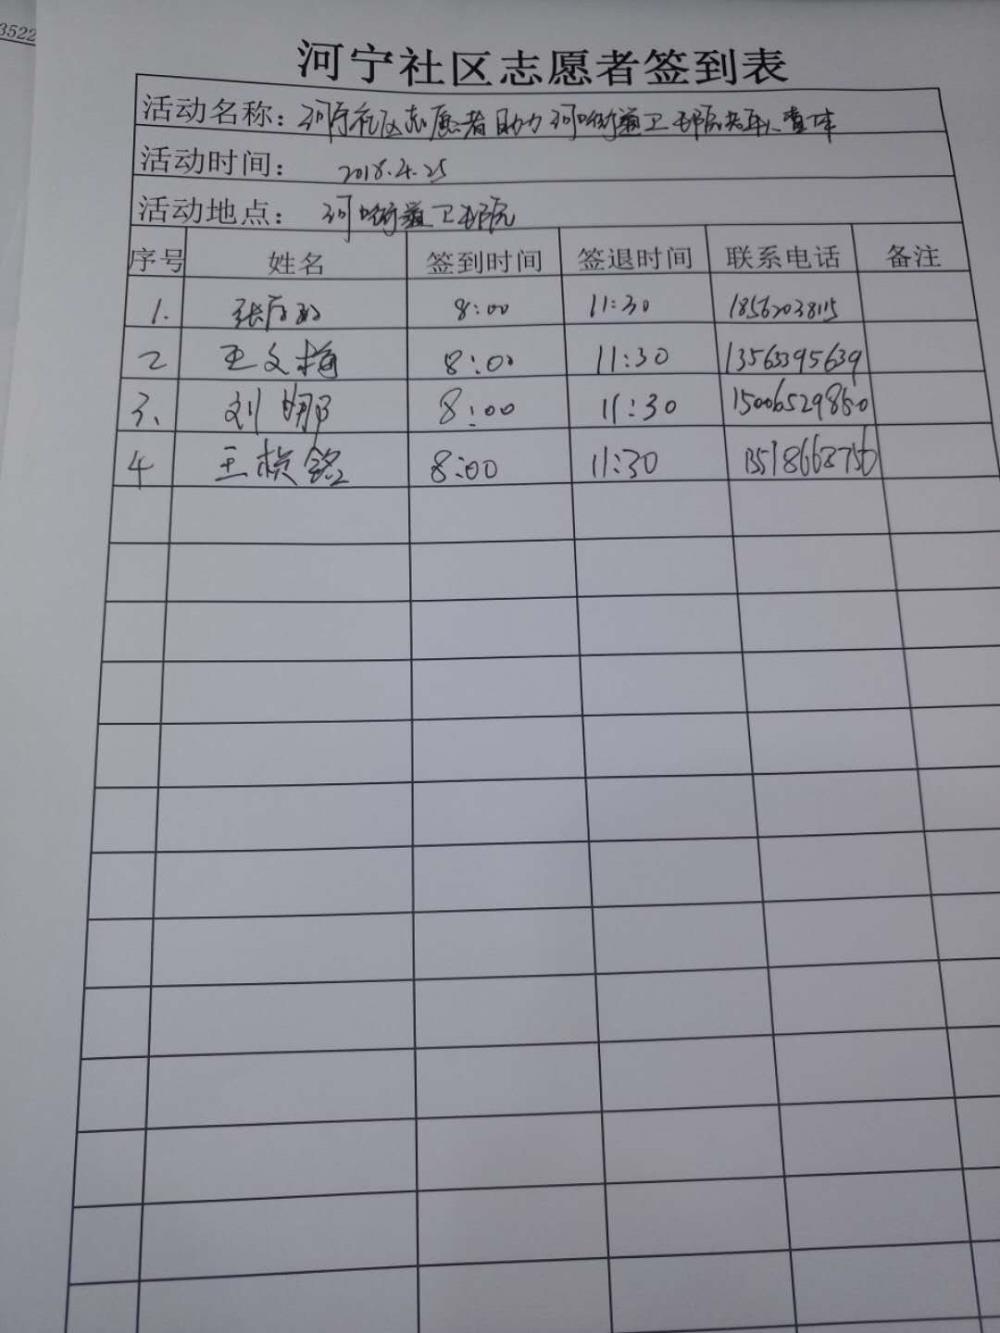 3522
河宁社区志愿者签到表
活动名称：河宁社区志愿者助力河口街道卫生院老年人查体
活动时间： 2018.4.25
活动地点： 河口街道卫生院
序号 姓名 签到时间 签退时间 联系电话 备注
1. 张 8:00 11:30 18562038115
2 王文梅 8:00 11:30 13563395639
3、 刘娜 8:00 11:30 15006529850
4 王桢铭 8:00 11:30